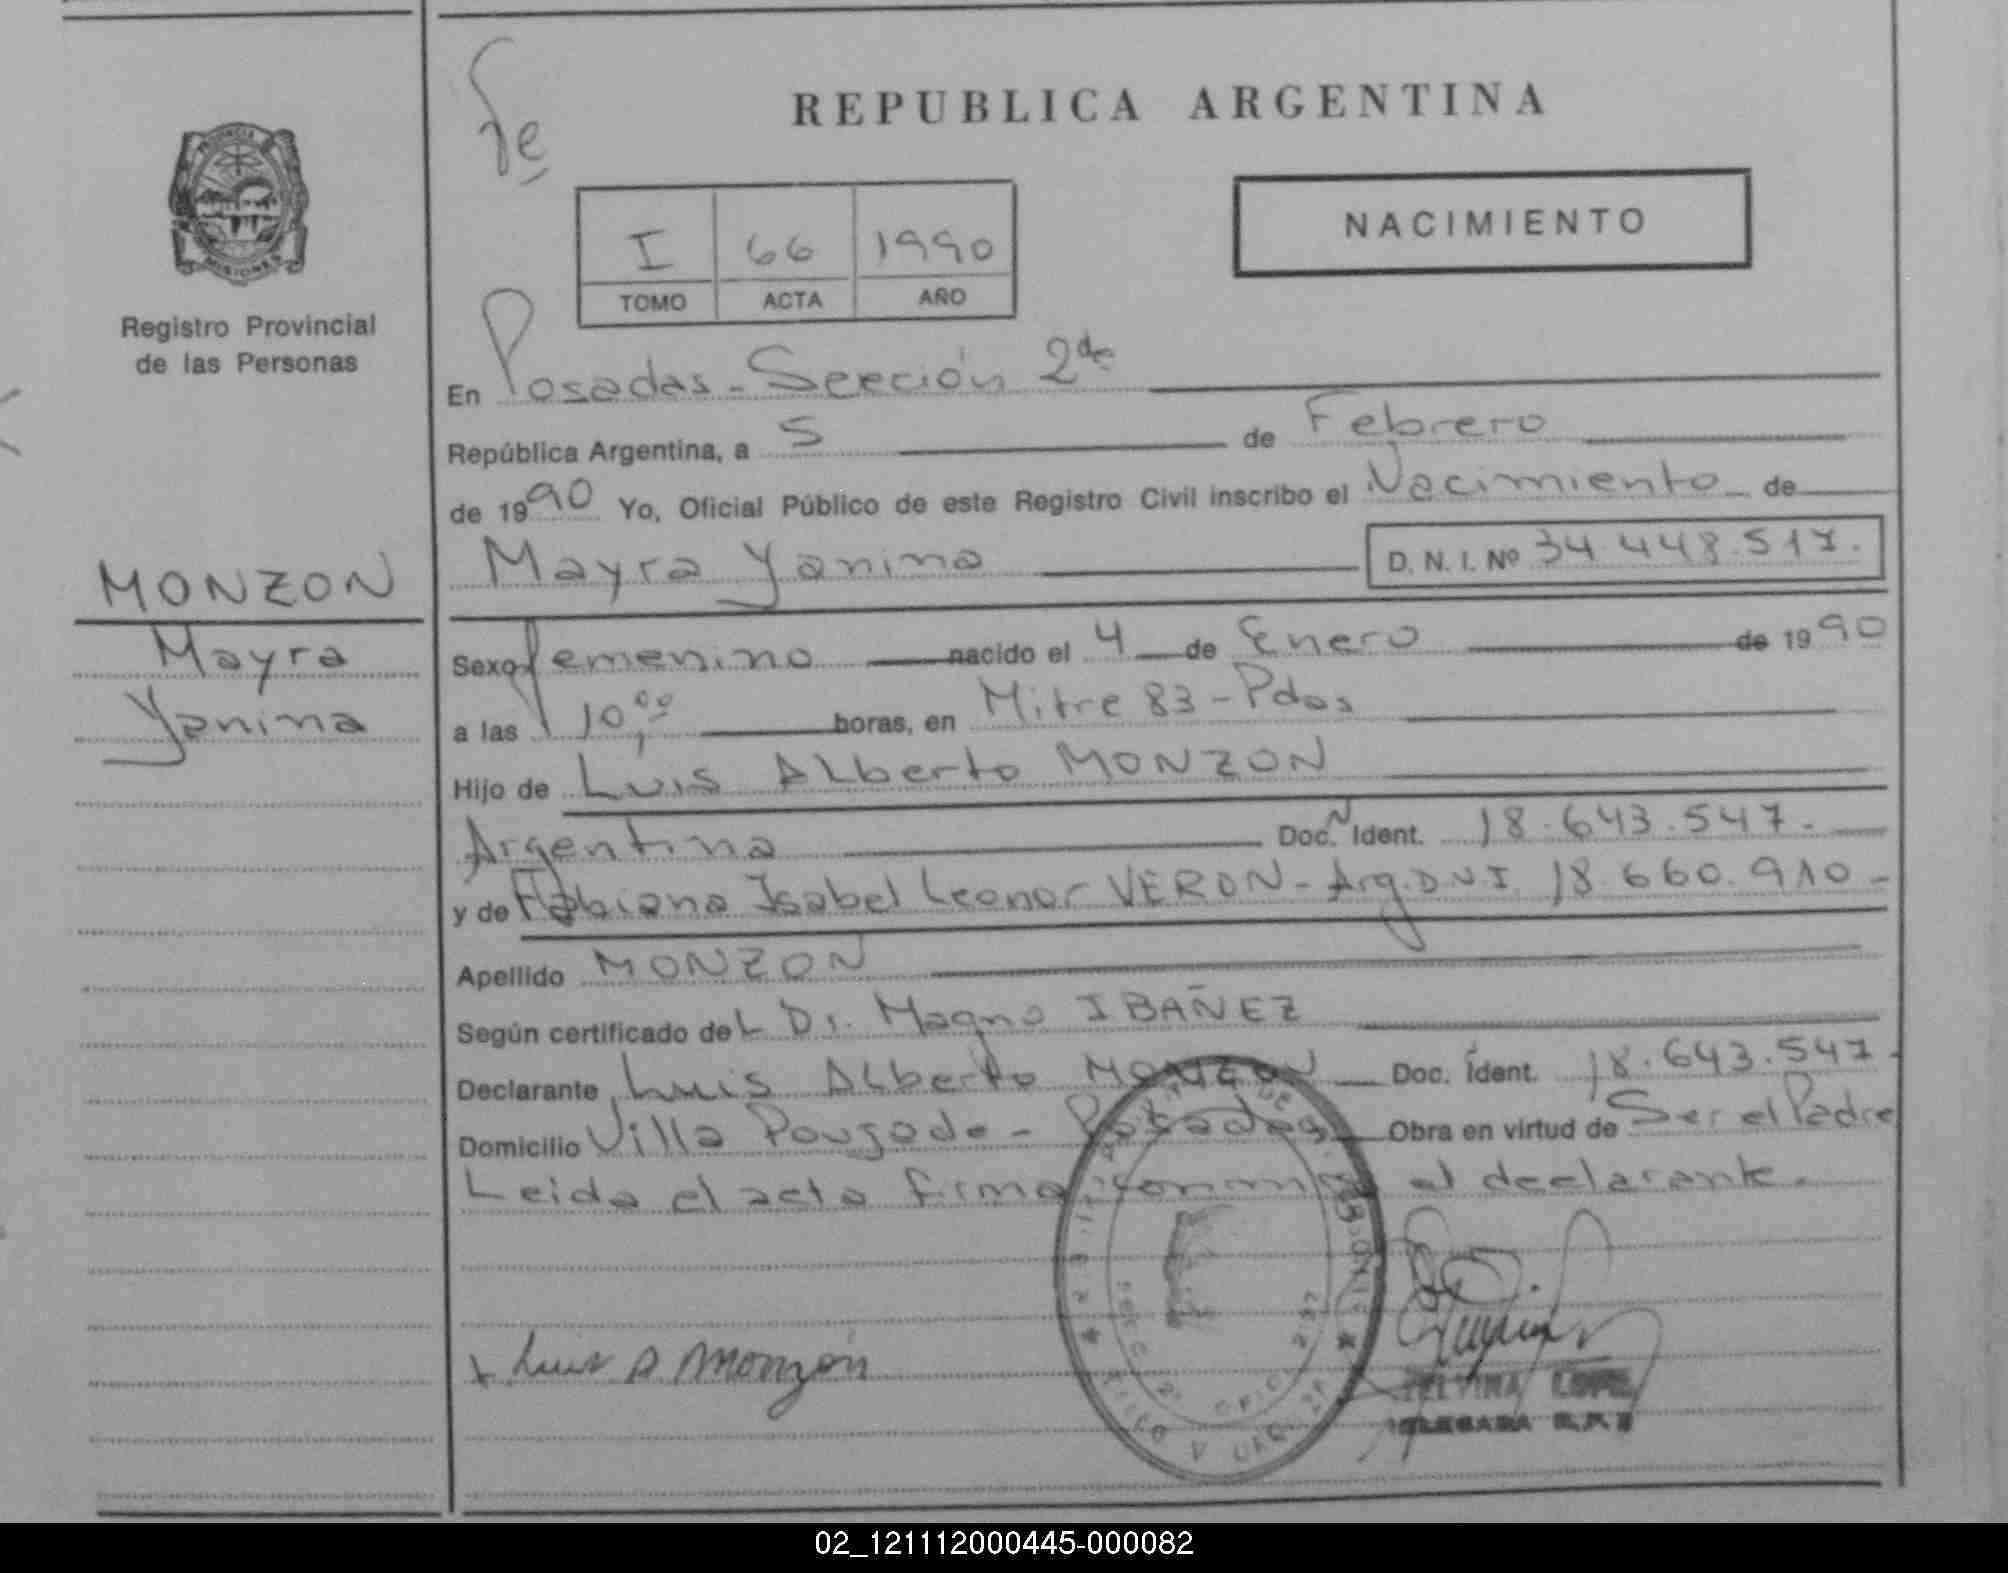 REPUBLICA ARGENTINA
NACIMIENTO
I 66 1990
TOMO ACTA AÑO
PROVINCIA
MISIONES
Registro Provincial
de las Personas
MONZON
Mayra
Yanina
En Posadas - Sección 2da
República Argentina, a 5 de Febrero
de 1990 Yo, Oficial Público de este Registro Civil inscribo el Nacimiento de
Mayra Yanina D. N. I. Nº 34.448.517.
Sexo femenino nacido el 4 de Enero de 1990
a las 10,00 horas, en Mitre 83 - Pdas
Hijo de Luis ALberto MONZON
Argentina Doc. N Ident. 18.643.547.
y de Fabiana Isabel Leonor VERON - Arg. D.N.I. 18.660.910 -
Apellido MONZON
Según certificado del Dr. Magno IBAÑEZ
Declarante Luis ALberto MONZON Doc. Ident. 18.643.547.
Domicilio Villa Poujade - Posadas Obra en virtud de Ser el Padre
Leida el acta firma conmigo el declarante.
Luis A. Monzón
02_121112000445-000082